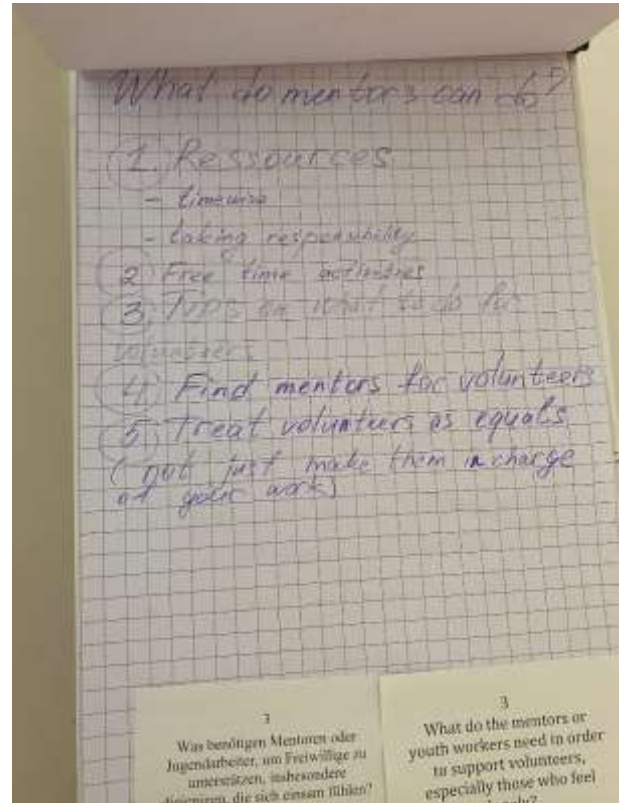 What do mentors can do?
1. Ressources
- timewise
- taking responsibility
2. Free time activities
3. Tipps on what to do for
volunteers
4. Find mentors for volunteers
5. Treat volunteers as equals
(not just make them in charge
of your work)
3
Was benötigen Mentoren oder
Jugendarbeiter, um Freiwillige zu
unterstützen, insbesondere
diejenigen, die sich einsam fühlen?
3
What do the mentors or
youth workers need in order
to support volunteers,
especially those who feel